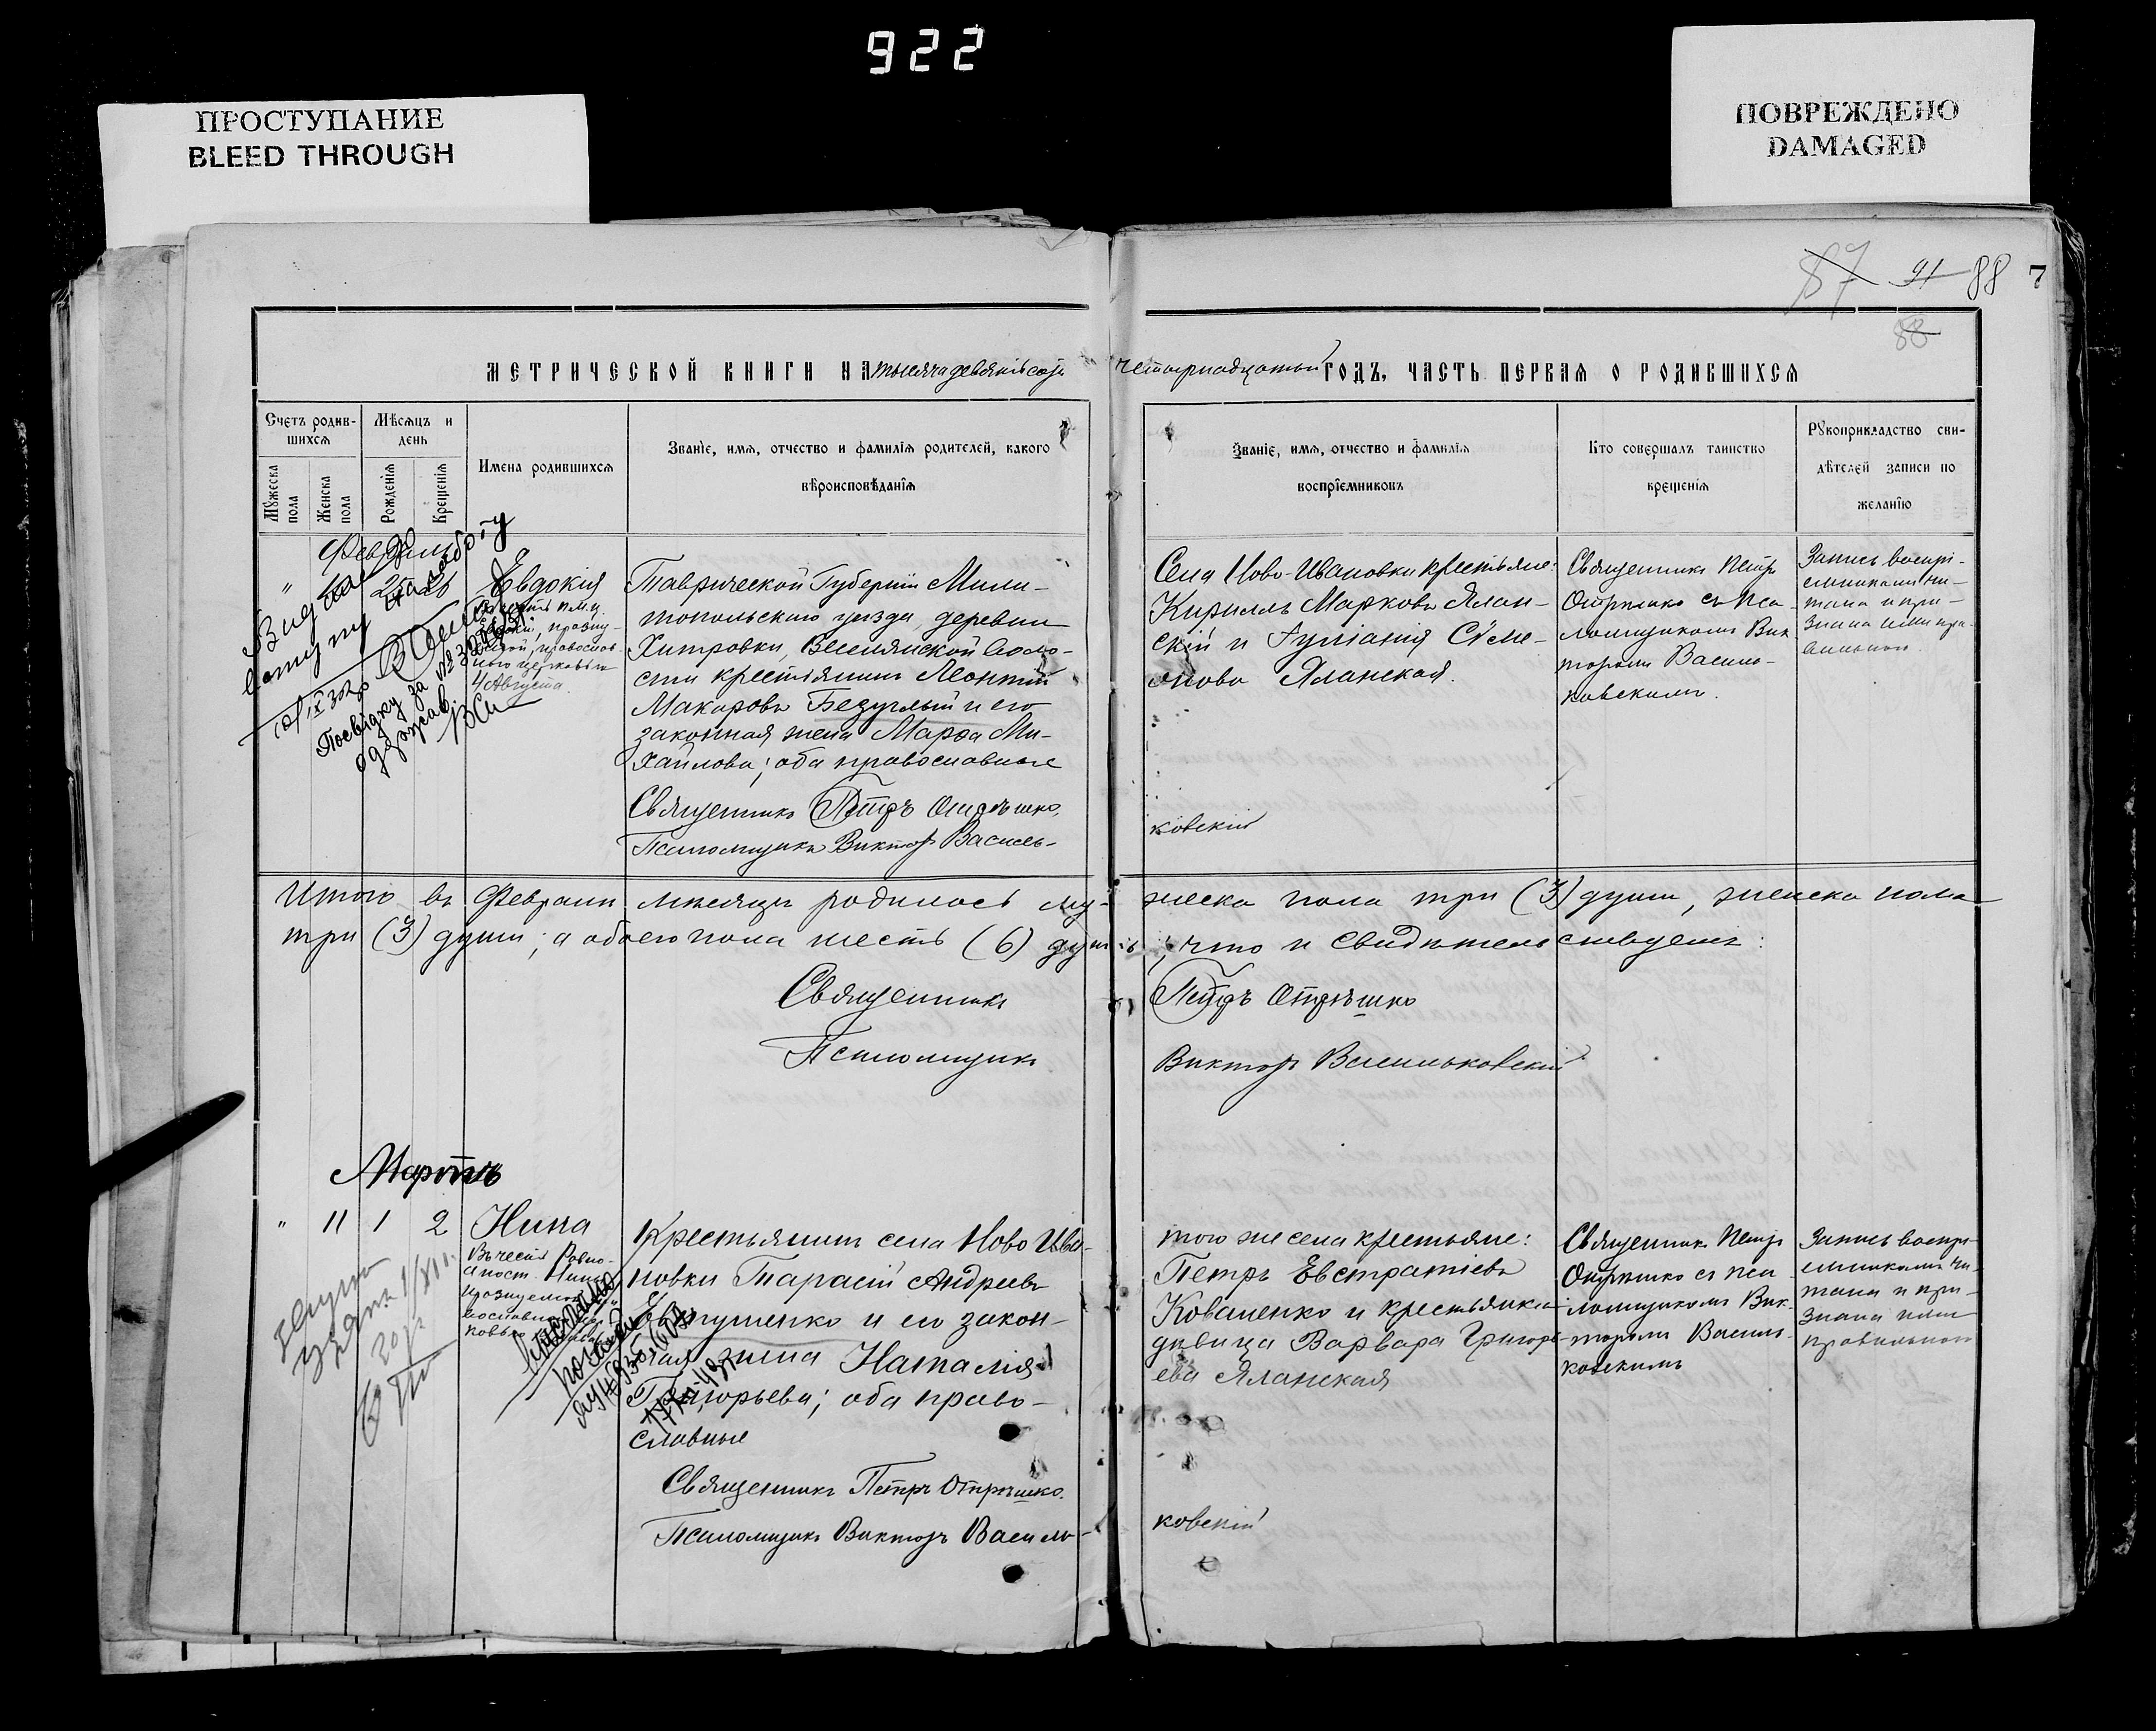 922
ПРОСТУПАНИЕ
BLEED THROUGH
ПОВРЕЖДЕНО
DAMAGED
87 91 88 7
88
МЕТРИЧЕСКОЙ КНИГИ НА тысяча девятьсотъ четырнадцатый ГОДЪ, ЧАСТЬ ПЕРВАЯ О РОДИВШИХСЯ
Счетъ родив-
шихся
Мѣсяцъ и
день
Мужеска пола
Женска пола
Рожденія
Крещенія
Имена родившихся
Званіе, имя, отчество и фамилія родителей, какого
вѣроисповѣданія
Званіе, имя, отчество и фамилія
воспріемниковъ
Кто совершалъ таинство
крещенія
Рукоприкладство сви-
дѣтелей записи по
желанію
Февраль
" 25 26 Евдокия
4 Августа
Таврической Губерніи Мели-
топольскаго уѣзда, деревни
Хитровки, Веселянской Воло-
сти крестьянинъ Леонтій
Макаровъ Безуглый и его
законная жена Марѳа Ми-
хайлова; оба православные
Священникъ Петръ Отрѣшко
Псаломщикъ Викторъ Василь-
Села Ново-Ивановки крестьяне:
Кириллъ Марковъ Ялан-
скій и Іуліанія Симе-
онова Яланская.
ковскій
Священникъ Петръ
Отрѣшко съ пса-
ломщикомъ Вик-
торомъ Василь-
ковскимъ.
Запись воспрі-
емниками чи-
тана и при-
знана ими пра-
вильною.
Посвідку за №
одержав
Итого въ Февралѣ мѣсяцѣ родилось му-жеска пола три (3) души, женска пола
три (3) души; а обоего пола шесть (6) душъ; что и свидѣтельствуемъ:
Священникъ Петръ Отрѣшко
Псаломщикъ Викторъ Васильковскій
Мартъ
" 11 1 2 Нина
Въ честь Равно-
апост. Нины
Крестьянинъ села Ново Ива-
новки Тарасій Андреевъ
Евтушенко и его закон-
ная жена Наталія
Григорьева; оба право-
славные
Священникъ Петръ Отрѣшко.
Псаломщикъ Викторъ Василь-
того же села крестьяне:
Петръ Евстратіевъ
Коваленко и крестьянка
дѣвица Варвара Григорь-
ева Яланская
ковскій
Священникъ Петръ
Отрѣшко съ пса-
ломщикомъ Вик-
торомъ Василь-
ковскимъ
Запись воспрі-
емниками чи-
тана и при-
знана ими
правильною